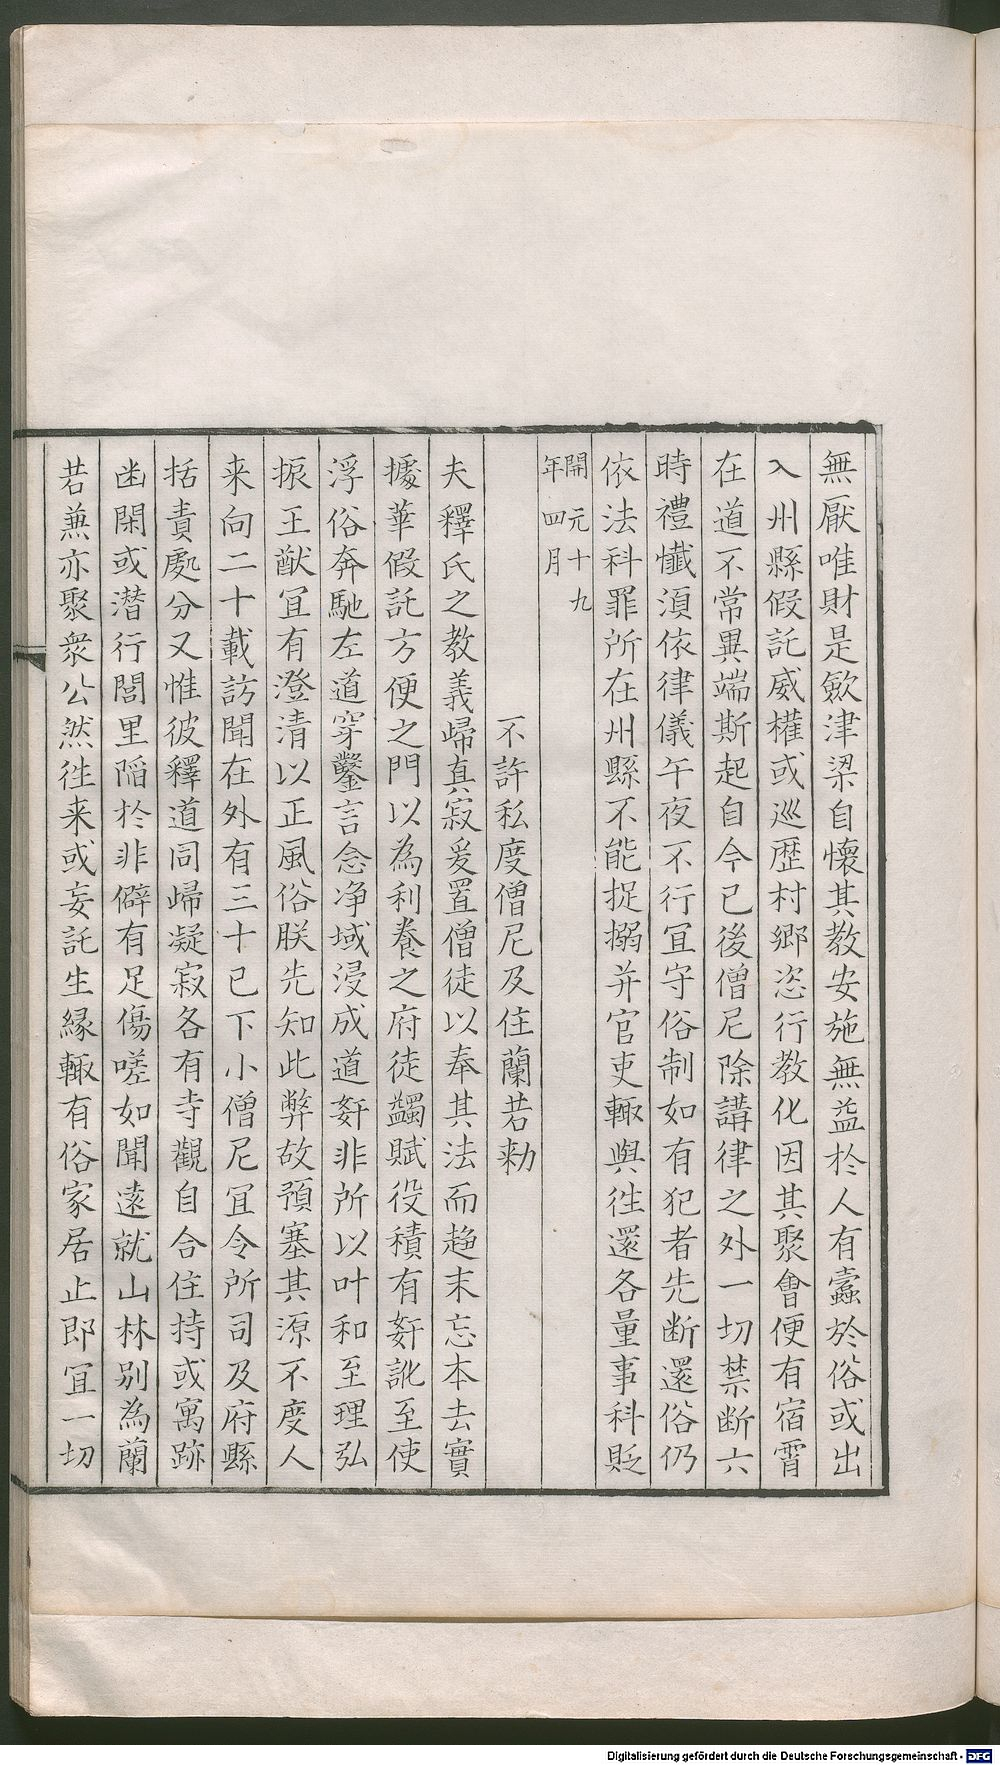 無厭唯財是斂津梁自懷其教安施無益扵人有蠹於俗或出
入州縣假託威權或巡歷村郷恣行教化因其聚會便有宿霄
在道不常異端斯起自今已後僧尼除講律之外一切禁断六
時禮懺湏依律儀午夜不行冝守俗制如有犯者先断還俗仍
依法科罪所在州縣不能捉搦并官吏輙與徃還各量事科貶
開元十九
年四月
不許私度僧尼及住蘭若勑
夫釋氏之教義歸真寂爰置僧徒以奉其法而趍末忘本去實
攄華假託方便之門以為利養之府徒蠲賦役積有姧訛至使
浮俗奔馳左道穿鑿言念净域浸成道姧非所以叶和至理弘
振王猷冝有澄清以正風俗朕先知此弊故預塞其源不度人
来向二十載訪聞在外有三十已下小僧尼冝令所司及府縣
括責處分又惟彼釋道同歸凝寂各有寺觀自合住持或寓跡
幽閑或潜行閭里陷扵非僻有足傷嗟如聞遠就山林别為蘭
若兼亦聚衆公然徃来或妄託生縁輙有俗家居止即冝一切
Digitalisierung gefördert durch die Deutsche Forschungsgemeinschaft - DFG